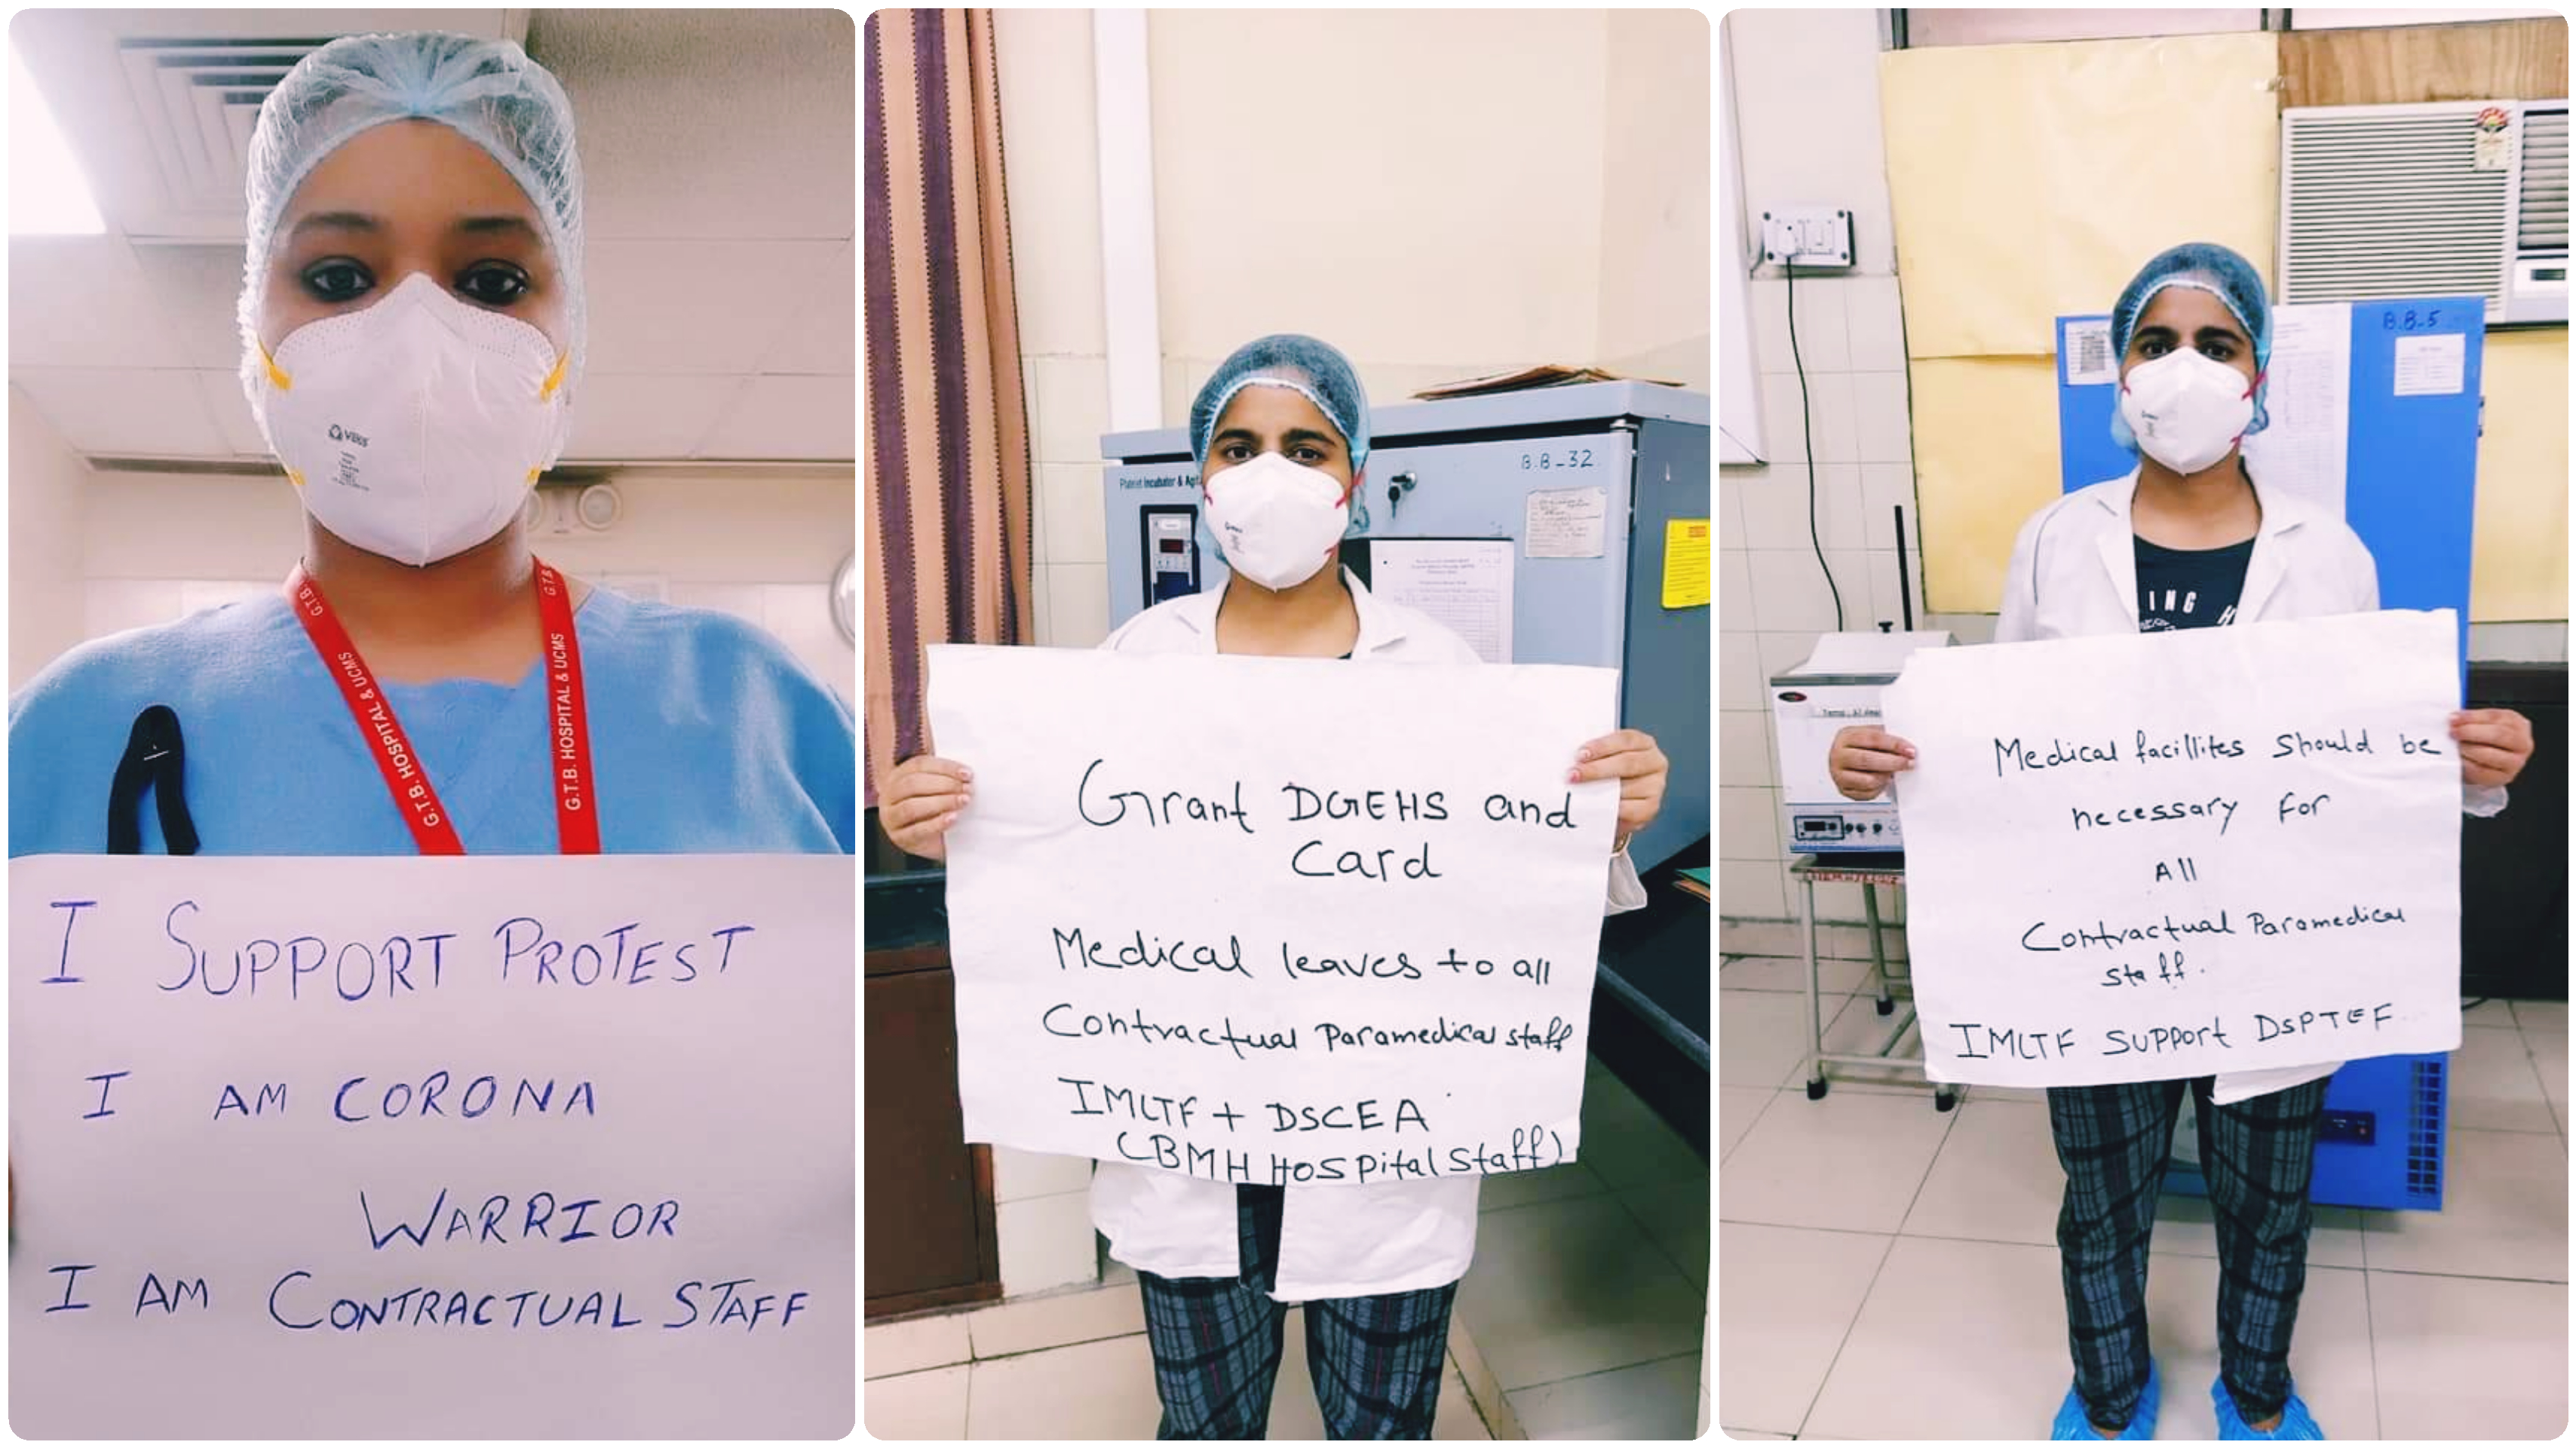 G.T.B.
G.T.B. HOSPITAL & UCMS
G.T.B. HOSPITAL & UCMS
I SUPPORT PROTEST
I AM CORONA
WARRIOR
I AM CONTRACTUAL STAFF
B.B-32
Platelet Incubator &
Grant DGEHS and
Card
Medical leaves to all
Contractual Paramedical staff
IMLTF + DSCEA
(BMH HOSpital Staff)
B.B-5
ING H
Medical facillites should be
necessary for
All
Contractual Paramedical
staff.
IMLTF Support DSPTEF